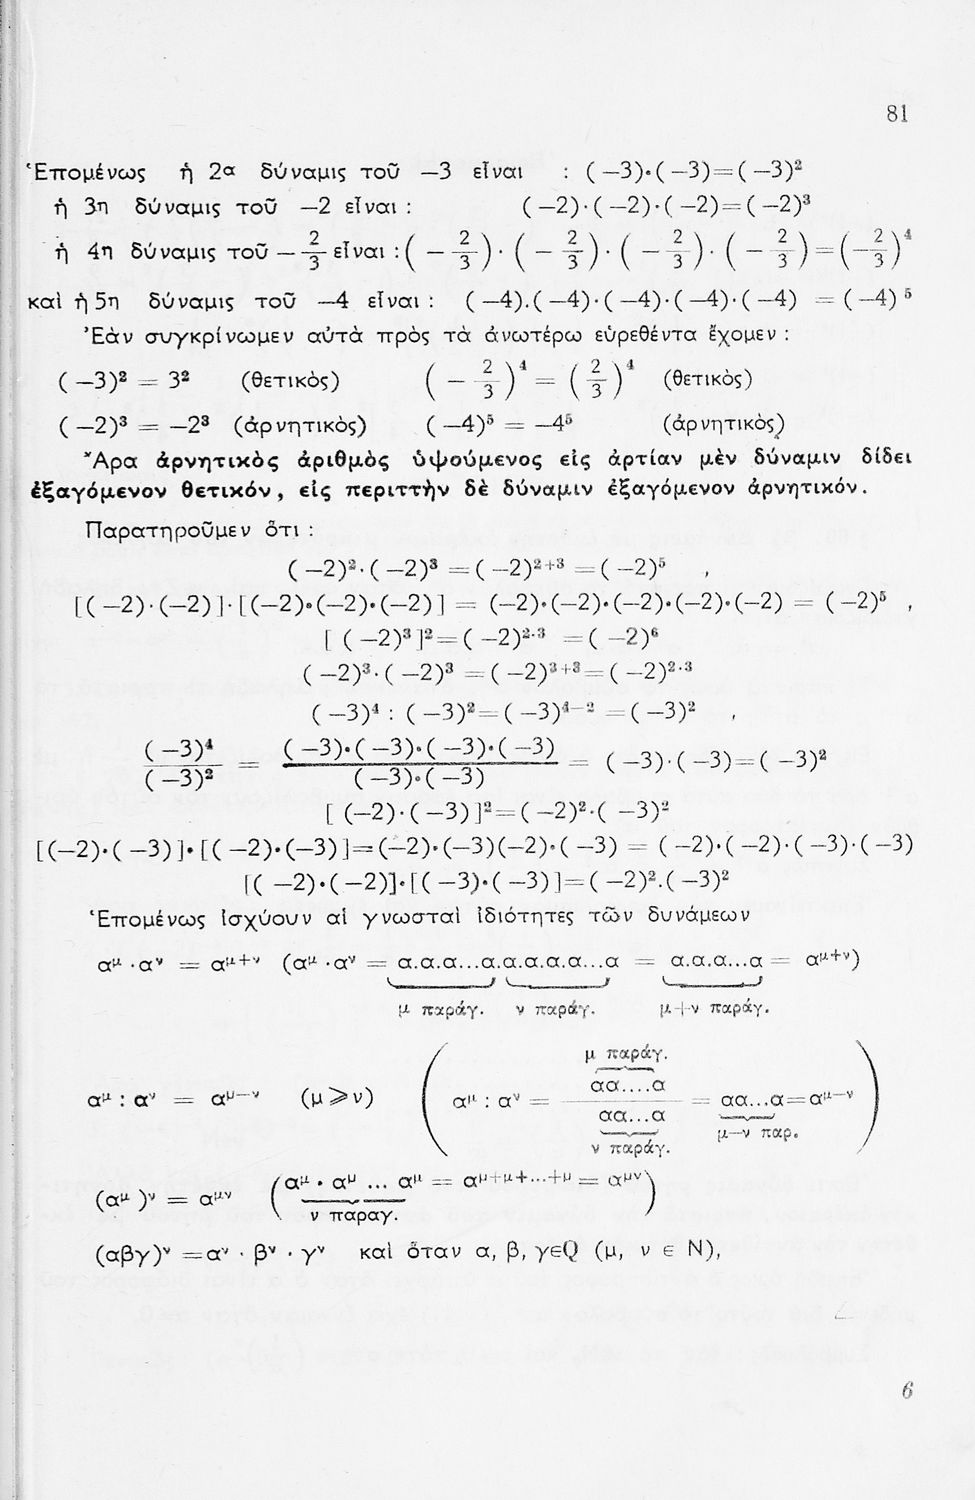 81
Ἑπομένως ἡ 2α δύναμις τοῦ —3 εἶναι : (—3)·(—3)=(—3)²
ἡ 3η δύναμις τοῦ —2 εἶναι : (—2)·(—2)·(—2)=(—2)³
ἡ 4η δύναμις τοῦ —2/3 εἶναι : (—2/3)·(—2/3)·(—2/3)·(—2/3)=(—2/3)⁴
καὶ ἡ 5η δύναμις τοῦ —4 εἶναι : (—4).(—4)·(—4)·(—4)·(—4) = (—4)⁵
Ἐὰν συγκρίνωμεν αὐτὰ πρὸς τὰ ἀνωτέρω εὑρεθέντα ἔχομεν :
(—3)² = 3² (θετικὸς) (—2/3)⁴ = (2/3)⁴ (θετικὸς)
(—2)³ = —2³ (ἀρνητικὸς) (—4)⁵ = —4⁵ (ἀρνητικὸς)
Ἄρα ἀρνητικὸς ἀριθμὸς ὑψούμενος εἰς ἀρτίαν μὲν δύναμιν δίδει
ἐξαγόμενον θετικόν, εἰς περιττὴν δὲ δύναμιν ἐξαγόμενον ἀρνητικόν.
Παρατηροῦμεν ὅτι :
(—2)²·(—2)³ =(—2)²⁺³ =(—2)⁵ ,
[(—2)·(—2)]·[(—2)·(—2)·(—2)] = (—2)·(—2)·(—2)·(—2)·(—2) = (—2)⁵ ,
[(—2)³]²=(—2)²·³ =(—2)⁶
(—2)³·(—2)³ =(—2)³⁺³=(—2)²·³
(—3)⁴ : (—3)²=(—3)⁴⁻² =(—3)² ,
(—3)⁴/(—3)² = (—3)·(—3)·(—3)·(—3)/(—3)·(—3) = (—3)·(—3)=(—3)²
[(—2)·(—3)]²=(—2)²·(—3)²
[(—2)·(—3)]·[(—2)·(—3)]=(—2)·(—3)(—2)·(—3) = (—2)·(—2)·(—3)·(—3)
[(—2)·(—2)]·[(—3)·(—3)]=(—2)².(—3)²
Ἑπομένως ἰσχύουν αἱ γνωσταὶ ἰδιότητες τῶν δυνάμεων
α^μ ·α^ν = α^μ+ν (α^μ ·α^ν = α.α.α...α.α.α.α.α...α = α.α.α...α = α^μ+ν)
μ παράγ. ν παράγ. μ+ν παράγ.
μ παράγ.
α^μ : α^ν = α^μ—ν (μ⩾ν) (α^μ : α^ν = αα....α/αα...α = αα...α=α^μ—ν)
ν παράγ. μ—ν παρ.
(α^μ)^ν = α^μν (α^μ · α^μ ... α^μ = α^μ+μ+...+μ = α^μν)
ν παραγ.
(αβγ)^ν =α^ν · β^ν · γ^ν καὶ ὅταν α, β, γεQ (μ, ν ε N),
6